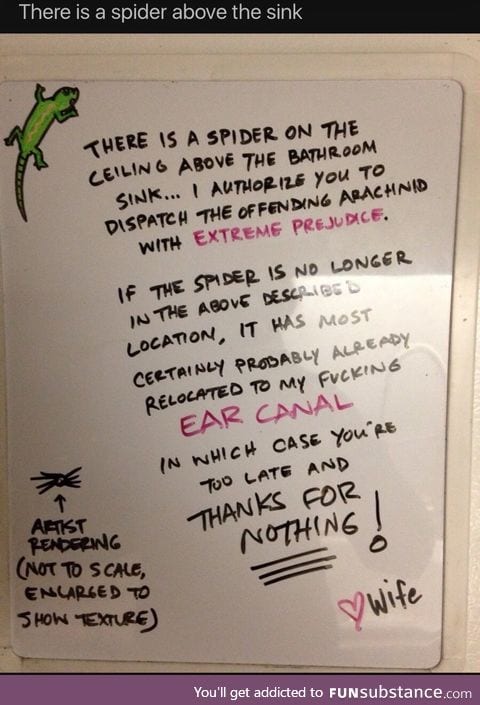 There is a spider above the sink
THERE IS A SPIDER ON THE
CEILING ABOVE THE BATHROOM
SINK... I AUTHORIZE YOU TO
DISPATCH THE OFFENDING ARACHNID
WITH EXTREME PREJUDICE.
IF THE SPIDER IS NO LONGER
IN THE ABOVE DESCRIBED
LOCATION, IT HAS MOST
CERTAINLY PROBABLY ALREADY
RELOCATED TO MY FUCKING
EAR CANAL
IN WHICH CASE YOU'RE
TOO LATE AND
THANKS FOR
NOTHING!
ARTIST
RENDERING
(NOT TO SCALE,
ENLARGED TO
SHOW TEXTURE)
Wife
You'll get addicted to FUNsubstance.com